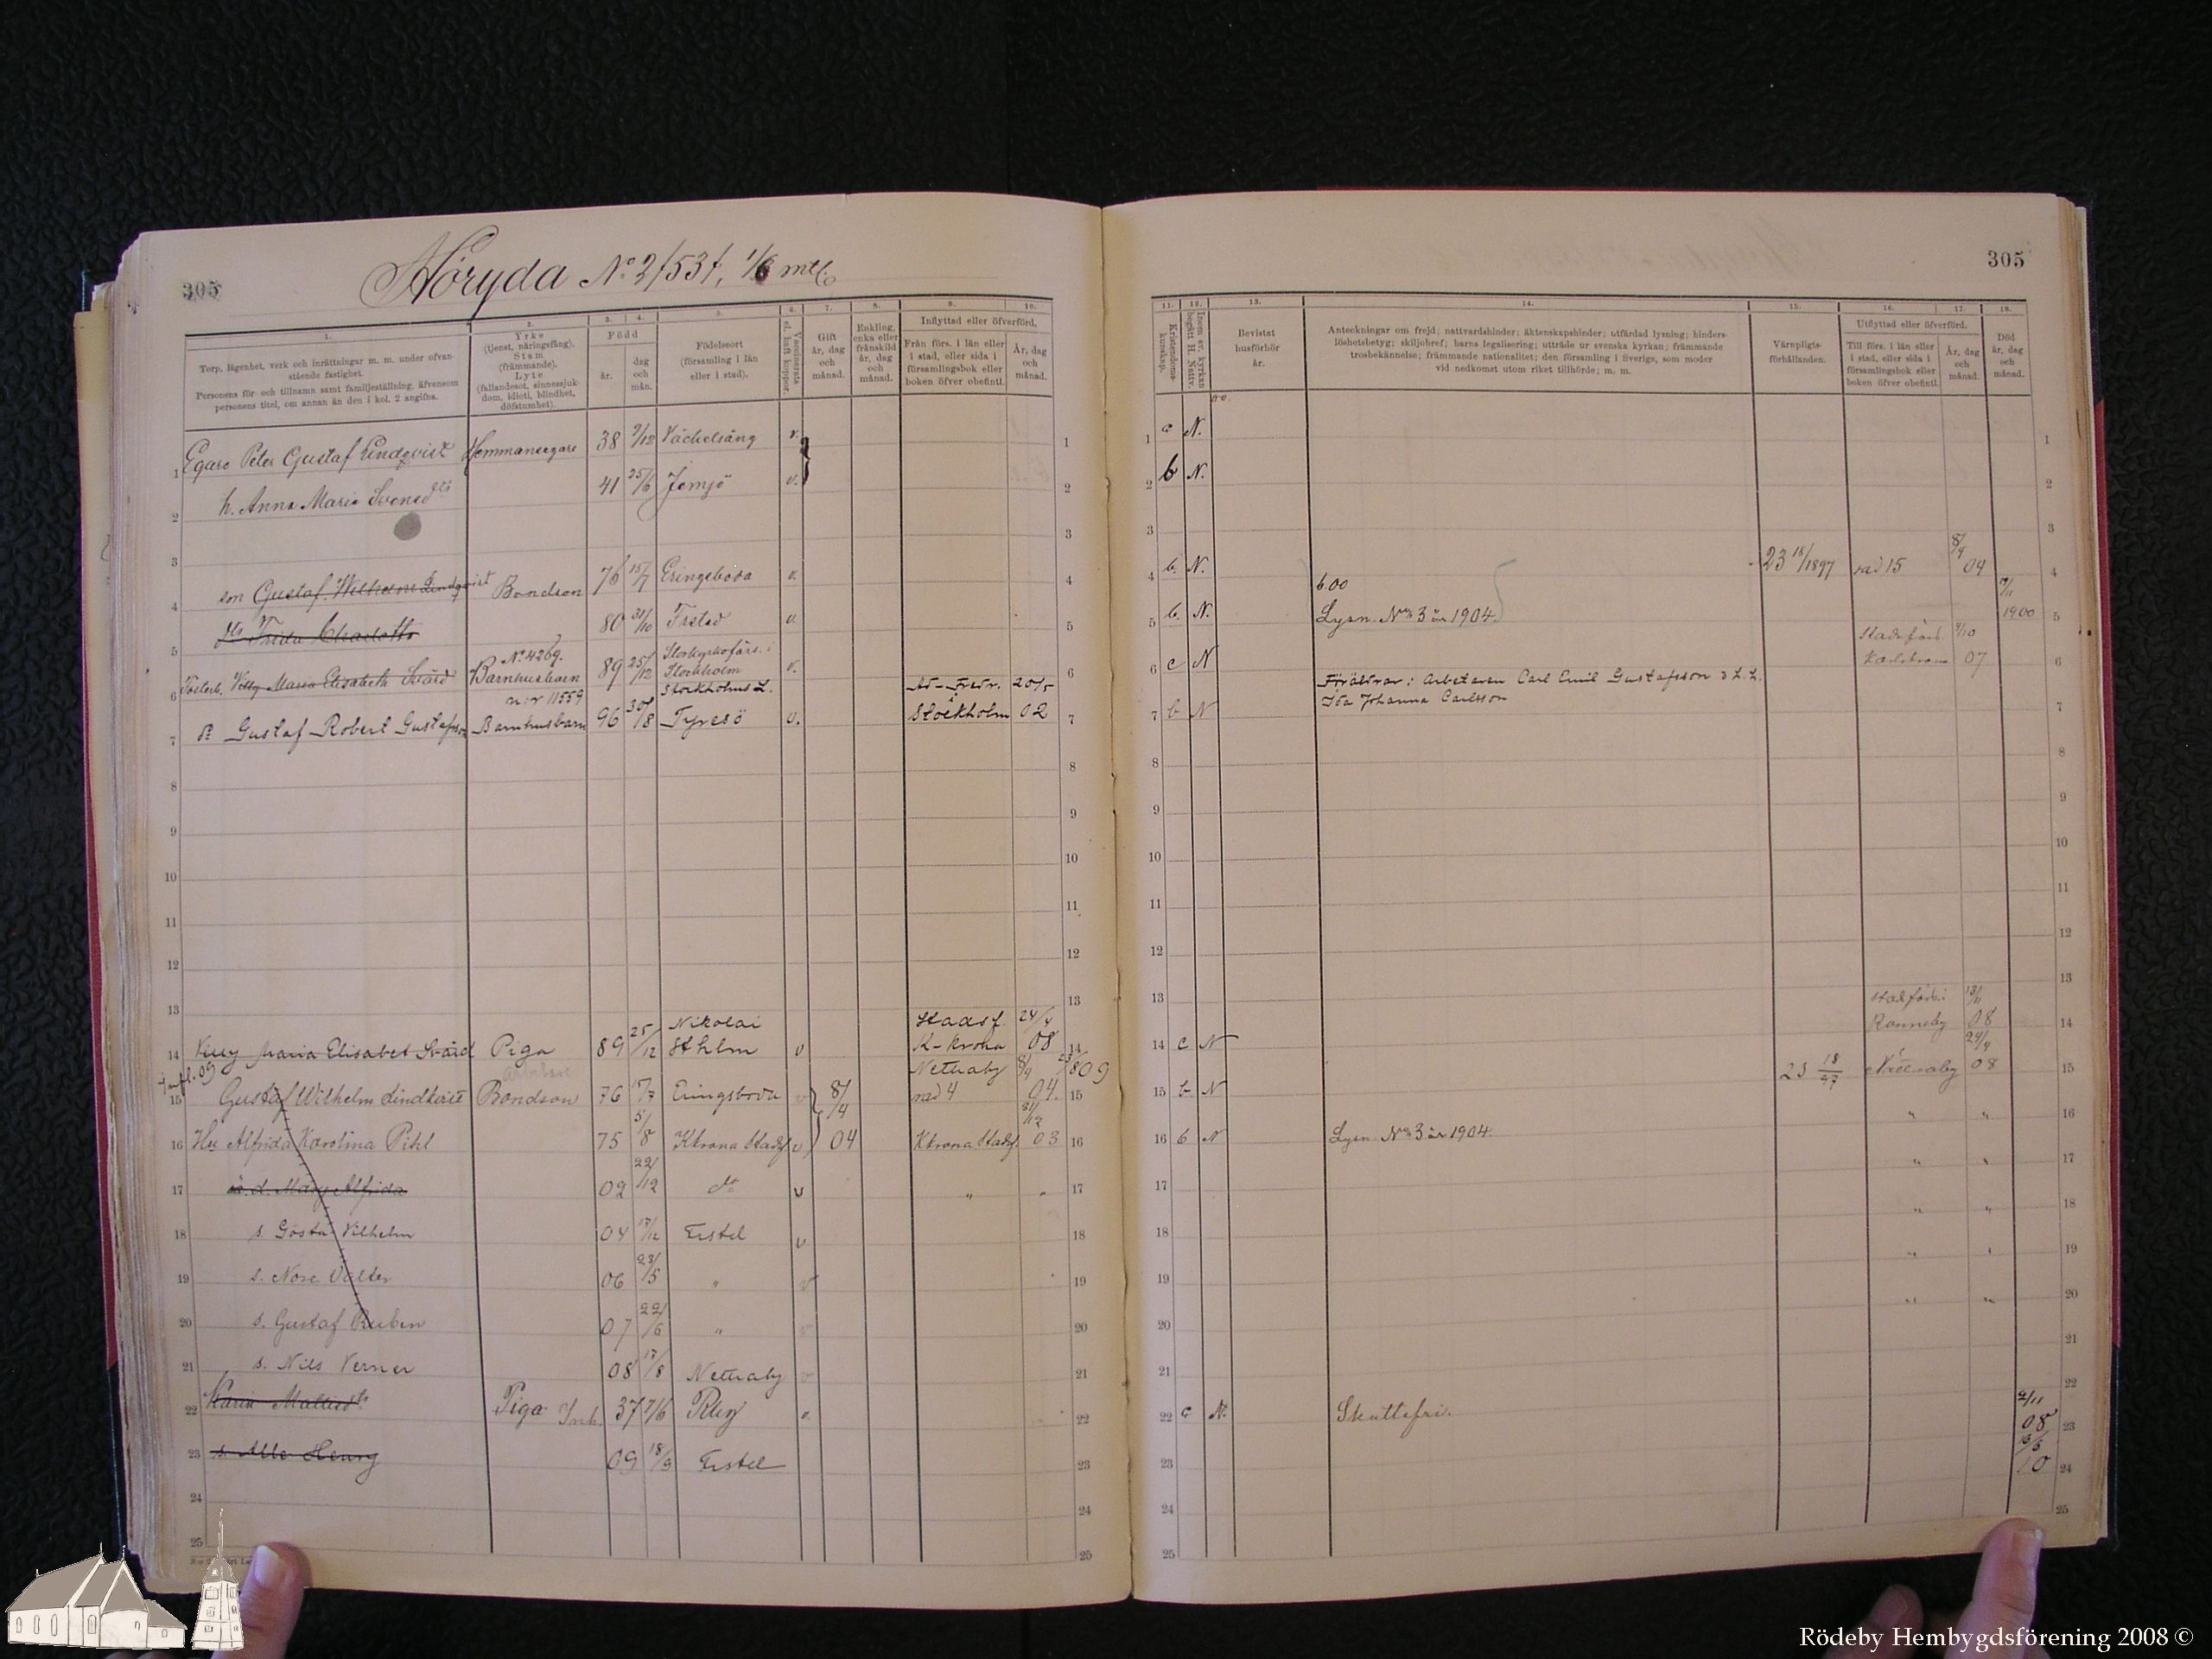 305
Höryda No 2/53/, 1/6 mtl
305
1.
2.
3.
4.
5.
6.
7.
8.
9.
10.
Torp, lägenhet, verk och inrättningar m. m. under ofvan-
stående fastighet.
Personens för- och tillnamn samt familjeställning, äfvensom
personens titel, om annan än den i kol. 2 angifna.
Yrke
(tjenst, näringsfång).
Stam
(främmande).
Lyte
(fallandesot, sinnessjuk-
dom, idioti, blindhet,
döfstumhet).
Född
år.
dag
och
mån.
Födelseort
(församling i län
eller i stad).
Vaccinerats
el. haft koppor.
Gift
år, dag
och
månad.
Enkling,
enka eller
frånskild
år, dag
och
månad.
Inflyttad eller öfverförd.
Från förs. i län eller
i stad, eller sida i
församlingsbok eller
boken öfver obefintl.
År, dag
och
månad.
11.
12.
13.
14.
15.
16.
17.
18.
Kristendoms-
kunskap.
Inom sv. kyrkan
begått H. Nattv.
Bevistat
husförhör
år.
Anteckningar om frejd; nattvardshinder; äktenskapshinder; utfärdad lysning; hinders-
löshetsbetyg; skiljobref; barns legalisering; utträde ur svenska kyrkan; främmande
trosbekännelse; främmande nationalitet; den församling i Sverige, som moder
vid nedkomst utom riket tillhörde; m. m.
Värnpligts-
förhållanden.
Utflyttad eller öfverförd.
Till förs. i län eller
i stad, eller sida i
församlingsbok eller
boken öfver obefintl.
År, dag
och
månad.
Död
år, dag
och
månad.
1 Egare Peter Gustaf Lindqvist Hemmansegare 38 9/12 Väckelsång v. 1 c N.
2 h. Anna Maria Svensdtr 41 25/6 Jemjö v. 2 b N.
3
4 son Gustaf Wilhelm Lindqvist Bondson 76 15/7 Eringsboda v. 4 b. N. 6.00 23 18/1897 rad 15 8/4 04
5 dtr Frida Charlotta 80 31/10 Fristad v. 5 b. N. Lysn. No 3 år 1904. 19/11 1900
6 Fosterb. Villy Maria Elisabeth Svärd No 4269. Barnhusbarn 89 25/12 Storkyrkoförs. i Stockholm v. 6 c N Stadsförs. Karlskrona 9/10 07
7 Gustaf Robert Gustafsson n:r 11559 Barnhusbarn 96 30/8 Stockholms L. Tyresö v. Ad-Fredr. Stockholm 20/5 02 7 b N Föräldrar: Arbetaren Carl Emil Gustafsson o h. h.
Ida Johanna Carlsson
8
9
10
11
12
13
14 Villy Maria Elisabet Svärd Piga 89 25/12 Nikolai Sthlm v Stadsf. K-krona 24/4 08 14 c N Stadsförs. Ronneby 13/11 08
15 Gustaf Wilhelm Lindkvist Bondson 76 15/7 Eringsboda v 8/4 Nettraby rad 4 8/4 04. 23/8 09 15 b N 23 18/97 Nättraby 24/4 08
16 Hu Alfrida Karolina Pihl 75 5/8 Kkrona Stadsf v 04 Kkrona Stadsf. 31/12 03 16 b N Lysn. No 3 år 1904. " "
17 d. Mary Alfrida 02 22/12 do v " " 17 " "
18 s. Gösta Vilhelm 04 17/12 v 18 " "
19 s. Nore Valter 06 23/5 " v 19 " "
20 s. Gustaf Ruben 07 22/6 " v 20 " "
21 s. Nils Verner 08 17/8 Nettraby v 21
22 Karin Mattisdtr Piga Inh. 37 7/6 v. 22 c N. Skattefri. 2/11 08
23 s. Henry 09 18/9 23 10
24
25
Rödeby Hembygdsförening 2008 ©